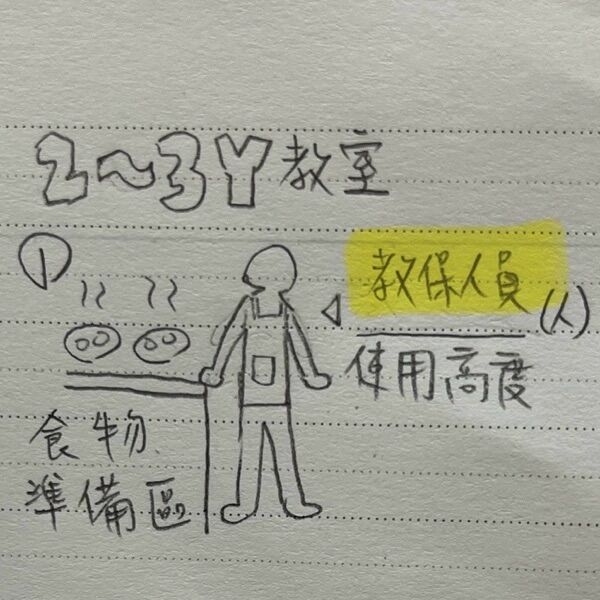 2~3Y教室
①
教保人員(人)
使用高度
食物
準備區